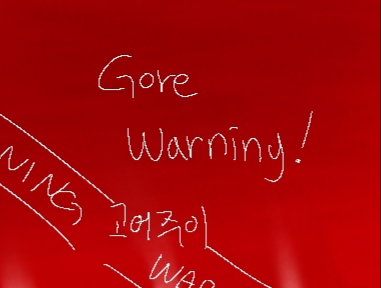 Gore
Warning!
NING
고어주의
WAR